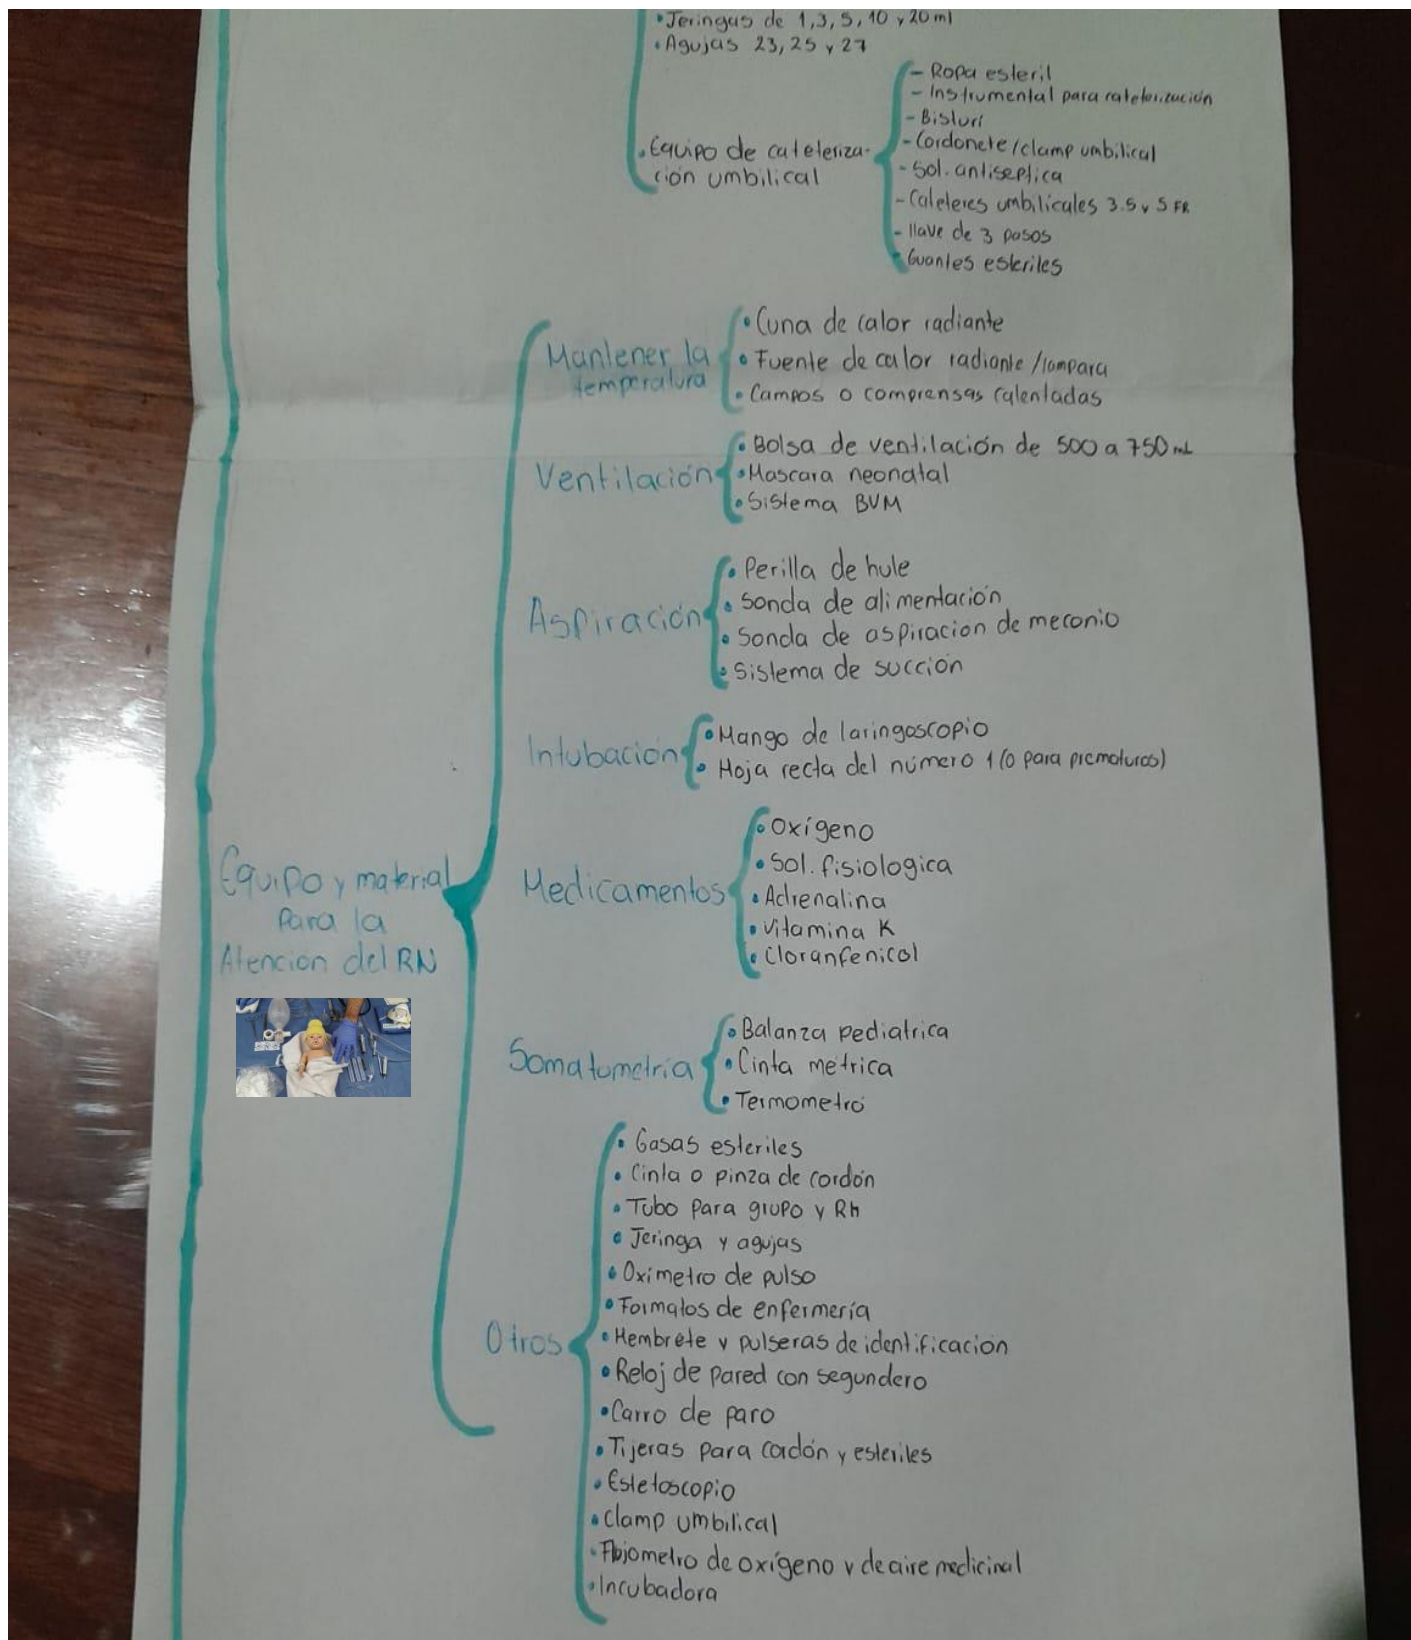 • Jeringas de 1,3,5,10 y 20 ml
• Agujas 23, 25 y 27
• Equipo de cateteriza-
ción umbilical
- Ropa esteril
- Instrumental para cateterización
- Bisturí
- Cordonete/clamp umbilical
- Sol. antiseptica
- Cateteres umbilicales 3.5 y 5 FR
- llave de 3 pasos
Guantes esteriles
Equipo y material
para la
Atencion del RN
Mantener la
temperatura
• Cuna de calor radiante
• Fuente de calor radiante /lampara
• Campos o comprensas calentadas
Ventilación
• Bolsa de ventilación de 500 a 750 mL
• Mascara neonatal
• Sistema BVM
Aspiración
• Perilla de hule
• Sonda de alimentación
• Sonda de aspiracion de meconio
• Sistema de succión
Intubación
• Mango de laringoscopio
• Hoja recta del número 1 (0 para prematuros)
Medicamentos
• Oxígeno
• Sol. fisiologica
• Adrenalina
• Vitamina K
• Cloranfenicol
Somatometría
• Balanza pediatrica
• Cinta métrica
• Termometro
Otros
• Gasas esteriles
• Cinta o pinza de cordón
• Tubo para grupo y Rh
• Jeringa y agujas
• Oximetro de pulso
• Formatos de enfermería
• Membrete y pulseras de identificación
• Reloj de pared con segundero
• Carro de paro
• Tijeras para cordón y esteriles
• Estetoscopio
• Clamp umbilical
• Flujometro de oxígeno y de aire medicinal
• Incubadora